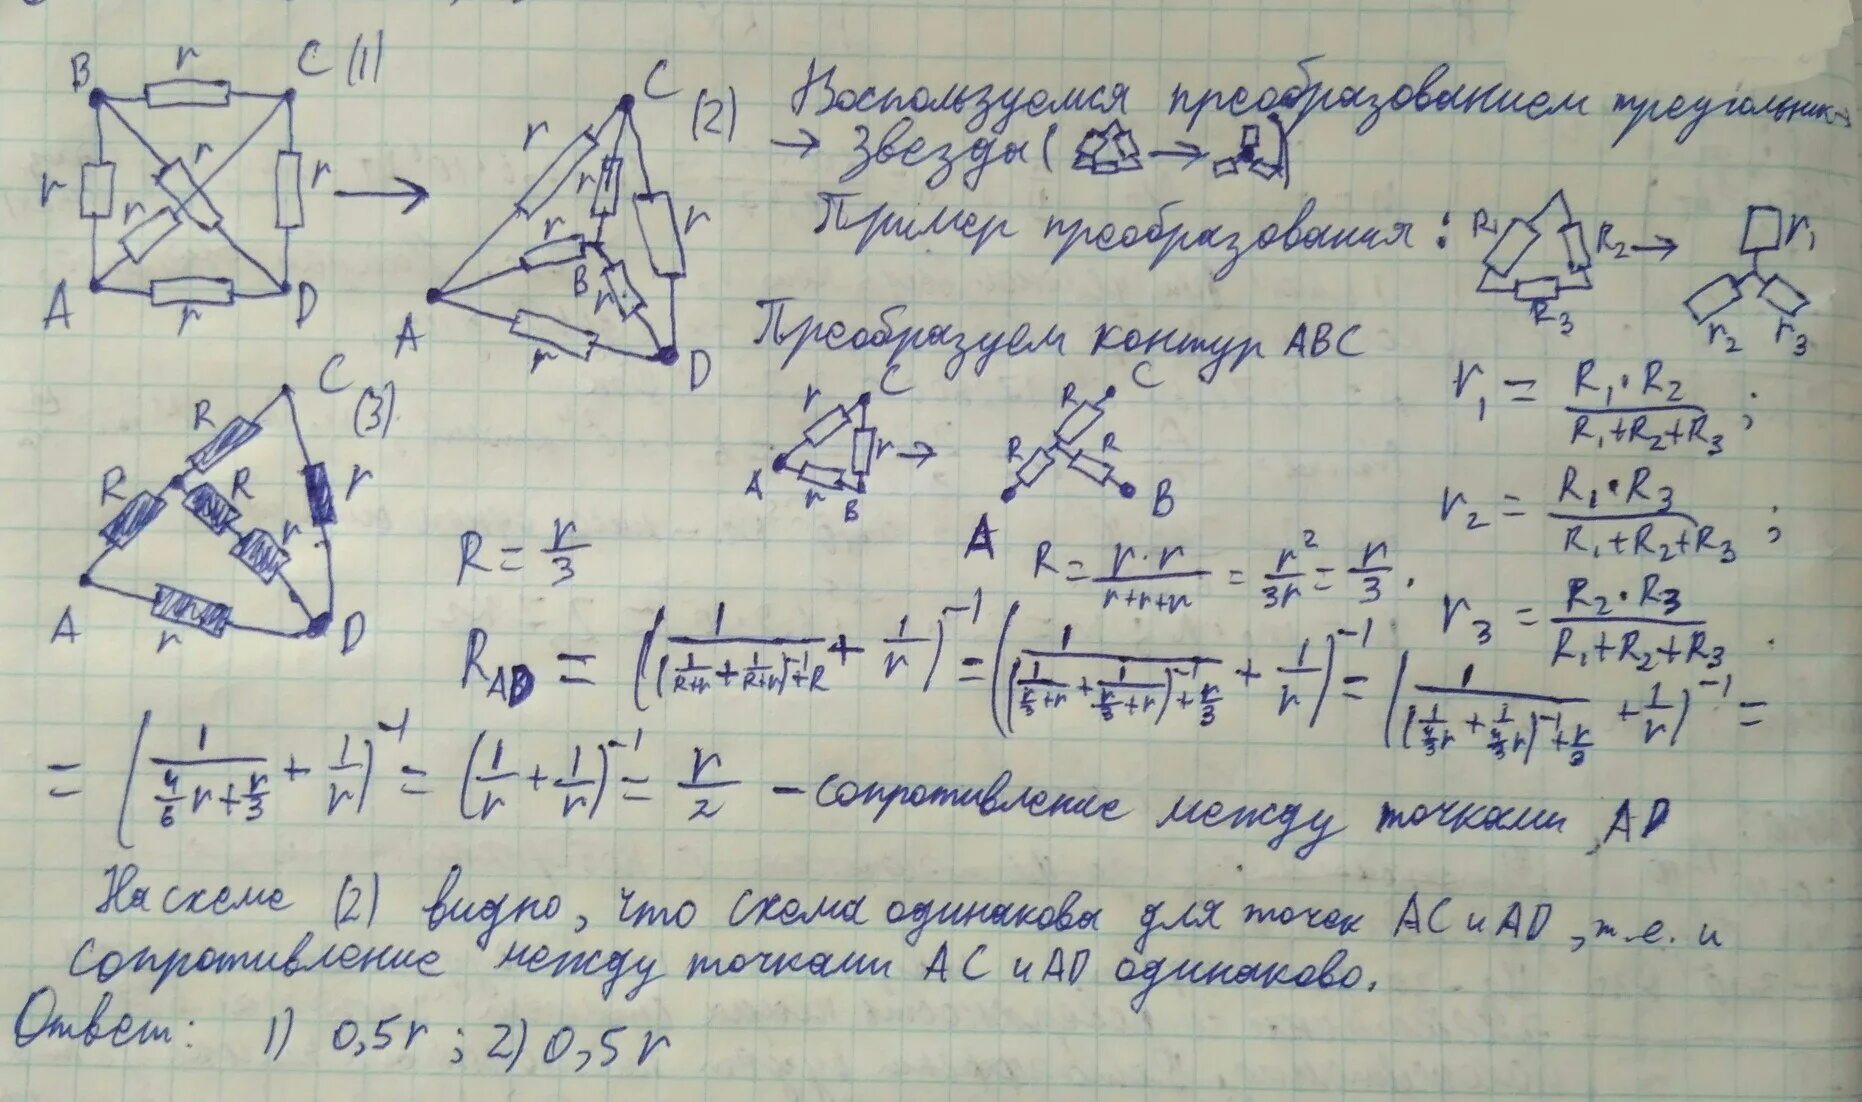 B r C (1)
r r r r
A r D
C (2)
r r r
r B r
A r D
Воспользуемся преобразованием треугольник →
→ Звезды ( → )
Пример преобразования : R₁ R₂ R₃ → r₁ r₂ r₃
Преобразуем контур ABC
r C r A r B → R C R R A B
r₁ = R₁·R₂ / (R₁+R₂+R₃) ;
r₂ = R₁·R₃ / (R₁+R₂+R₃) ;
r₃ = R₂·R₃ / (R₁+R₂+R₃) .
C (3)
R R R r r
A r D
R = r/3
R = r·r / (r+r+r) = r²/3r = r/3 .
R_AD = (1/((1/(R+r) + 1/(R+r))⁻¹+R) + 1/r)⁻¹ = (1/((1/(r/3+r) + 1/(r/3+r))⁻¹+r/3) + 1/r)⁻¹ = (1/((1/(4/3 r) + 1/(4/3 r))⁻¹+r/3) + 1/r)⁻¹ =
= (1/(4/6 r+r/3) + 1/r)⁻¹ = (1/r + 1/r)⁻¹ = r/2 – сопротивление между точками AD
На схеме (2) видно, что схема одинакова для точек AC и AD, т.е. и
сопротивление между точками AC и AD одинаково.
Ответ: 1) 0,5r ; 2) 0,5r